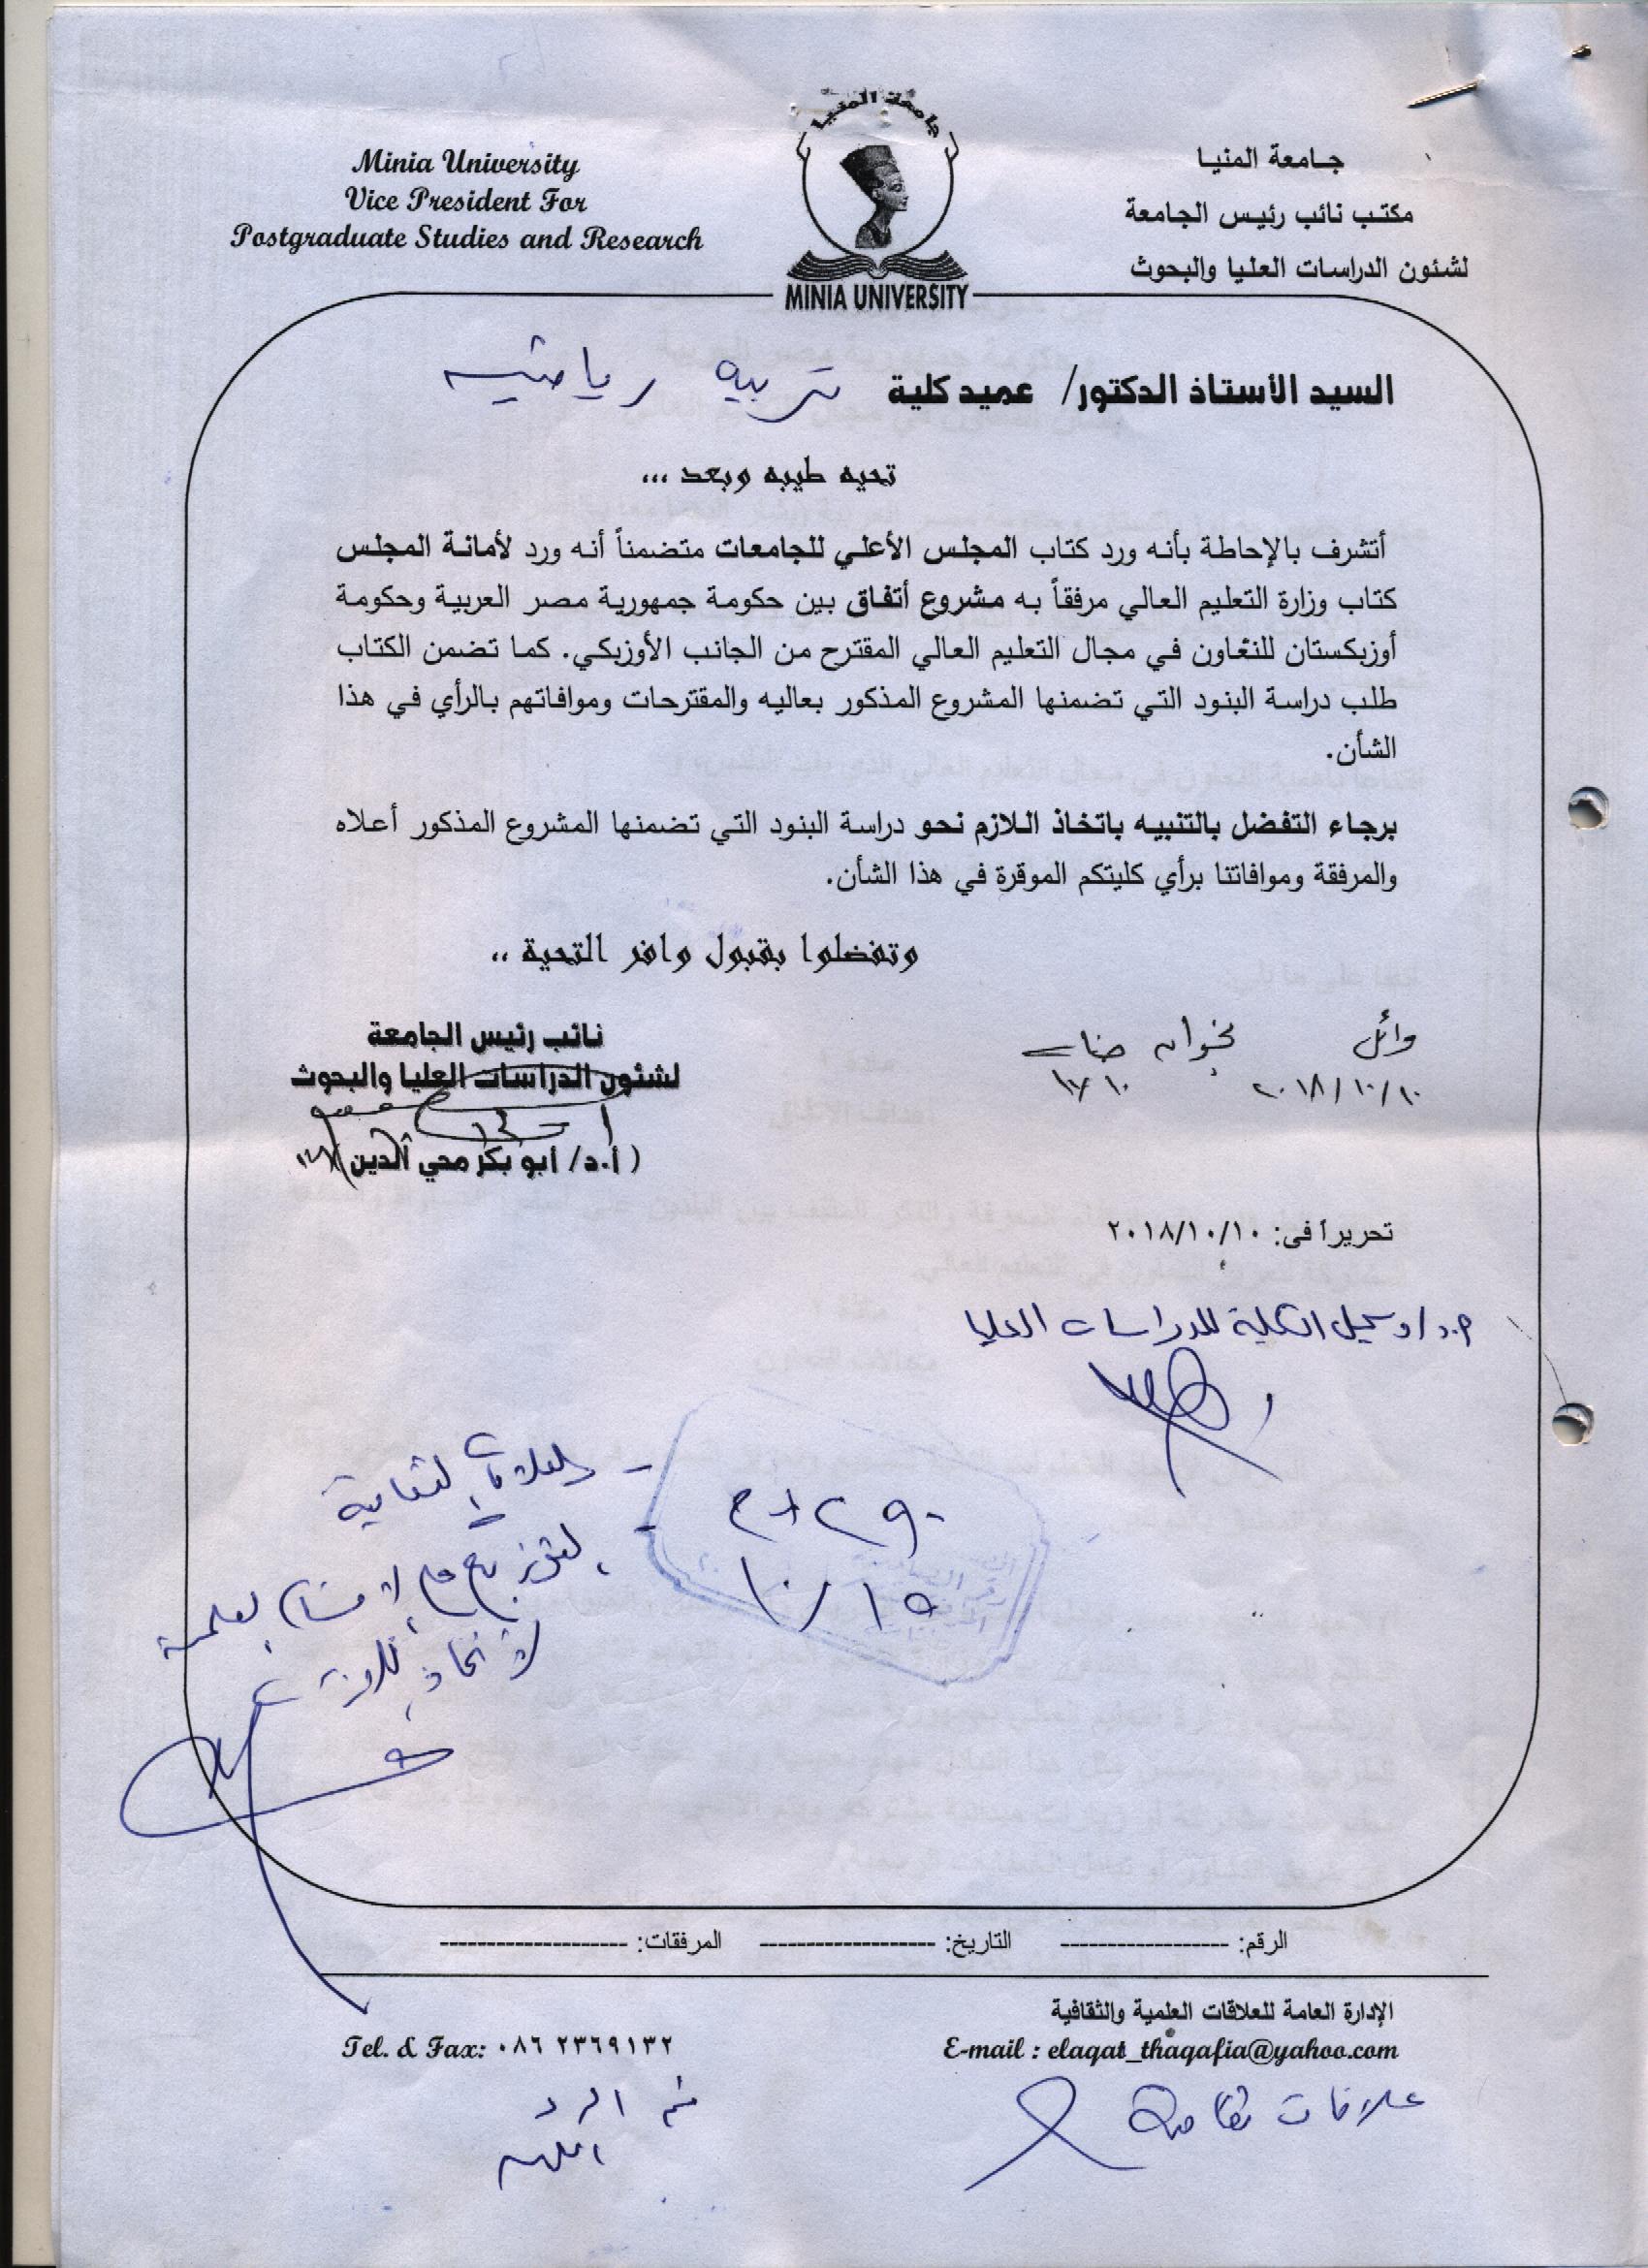 جامعة المنيا
Minia University
Vice President For
Postgraduate Studies and Research
جامعة المنيا
مكتب نائب رئيس الجامعة
لشئون الدراسات العليا والبحوث
MINIA UNIVERSITY
السيد الأستاذ الدكتور/ عميد كلية تربيه رياضيه
تحيه طيبه وبعد ...
أتشرف بالإحاطة بأنه ورد كتاب المجلس الأعلي للجامعات متضمناً أنه ورد لأمانة المجلس
كتاب وزارة التعليم العالي مرفقاً به مشروع أتفاق بين حكومة جمهورية مصر العربية وحكومة
أوزبكستان للتعاون في مجال التعليم العالي المقترح من الجانب الأوزبكي. كما تضمن الكتاب
طلب دراسة البنود التي تضمنها المشروع المذكور بعاليه والمقترحات وموافاتهم بالرأي في هذا
الشأن.
برجاء التفضل بالتنبيه باتخاذ اللازم نحو دراسة البنود التي تضمنها المشروع المذكور أعلاه
والمرفقة وموافاتنا برأي كليتكم الموقرة في هذا الشأن.
وتفضلوا بقبول وافر التحية ..
نائب رئيس الجامعة
لشئون الدراسات العليا والبحوث
(أ.د/ أبو بكر محي الدين)
وائل
٢٠١٨/١٠/١٠
تحريراً فى: ٢٠١٨/١٠/١٠
أ.د/ وكيل الكلية للدراسات العليا
العلاقات الثقافية
للتوزيع على الأقسام العلمية
لاتخاذ اللازم
٢٩٠
١٠/١٥
الرقم: ------------------ التاريخ: ------------------- المرفقات: --------------------
الإدارة العامة للعلاقات العلمية والثقافية
E-mail : elaqat_thaqafia@yahoo.com
Tel. & Fax: ٠٨٦ ٢٣٦٩١٣٢
علاقات ثقافية
تم الرد